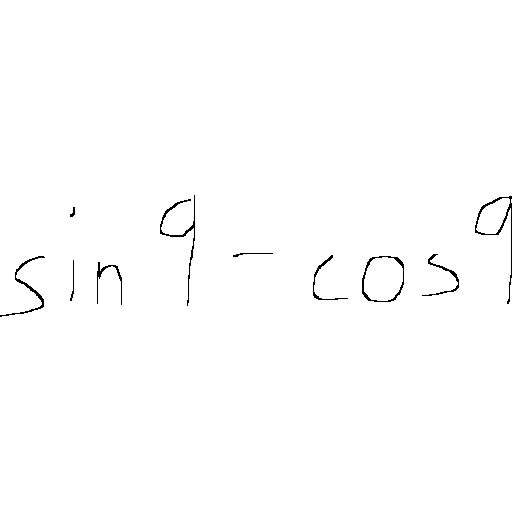 sin 9 - cos 9